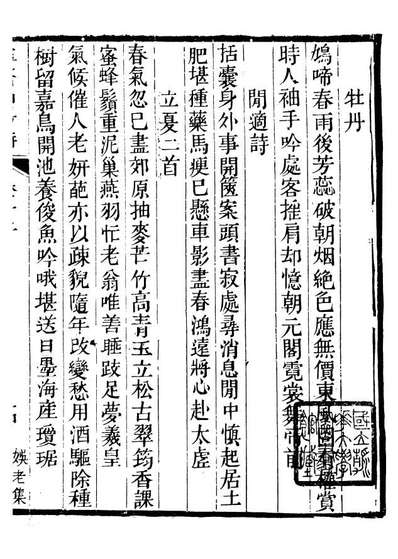 牡丹
鳩啼春雨後芳蕊破朝烟絶色應無價東風固有權賞
時人袖手吟處客推肩却憶朝元閣霓裳舞帝前
閒適詩
括囊身外事開篋案頭書寂處尋消息閒中慎起居土
肥堪種藥馬瘦已懸車影盡春鴻遠將心赴太虛
立夏二首
春氣忽已盡郊原抽麥芒竹高青玉立松古翠筠香課
蜜蜂鬚重泥巢燕羽忙老翁唯善睡跂足夢羲皇
氣候催人老妍葩亦以疎貌隨年改變愁用酒驅除種
樹留嘉鳥開池養俊魚吟哦堪送日墨海産瓊琚
娛老集